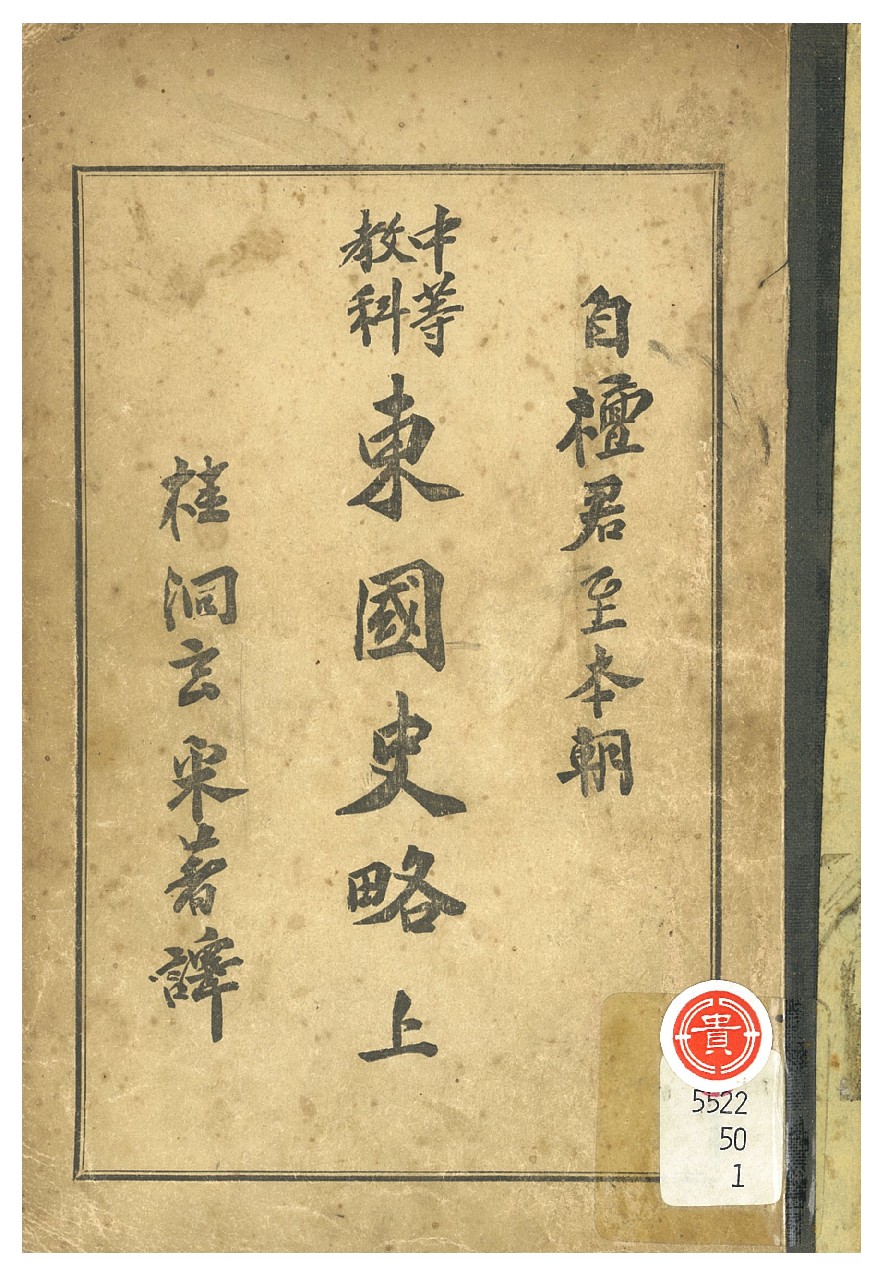 自檀君至本朝
中等
教科
東國史略上
桂洞玄采著譯
貴
5522
50
1